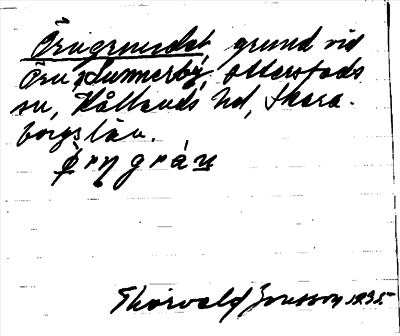 Örngrundet grund vid
Örn, Hunnerby, Otterstads
sn, Kållands hd, Skara-
borgs län.
Thorvald Jonsson 1935